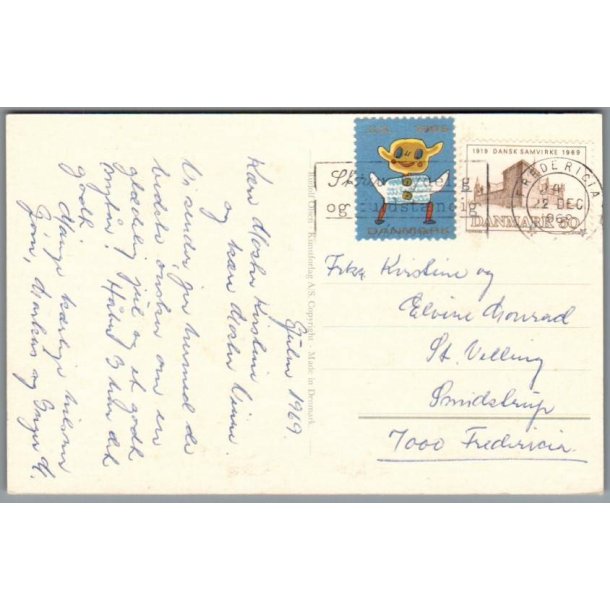 Gjulen 1969
Kære Moster Kirstine
og kære Moster Vinne.
Vi sender jer hermed de
bedste ønsker om en
glædelig jul og et godt
nytår! Håber I har det
godt.
Mange kærlige hilsner
Gorm, og Inger M.
JUL 1969
DANMARK
1919 DANSK SAMVIRKE 1969
DANMARK 60
Skriv tydelig
og fuldstændig
FREDERICIA
22 DEC
1969
Kunstforlag A/S. Copyright - Made in Denmark
Frkn. Kirstine og
Elvine Monrad
St. Velling
Smidstrup
7000 Fredericia.